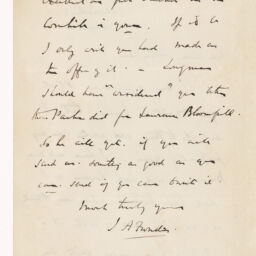 Cornhill is yours. If it is
I only wish you had made us
the offer of it. — Longman
should have "considered" you better
than Parker did for Laurence Bloomfield.
So he will yet. if you will
send us something as good as you
can send if you can trust it.
Most truly yours
J A Froude.